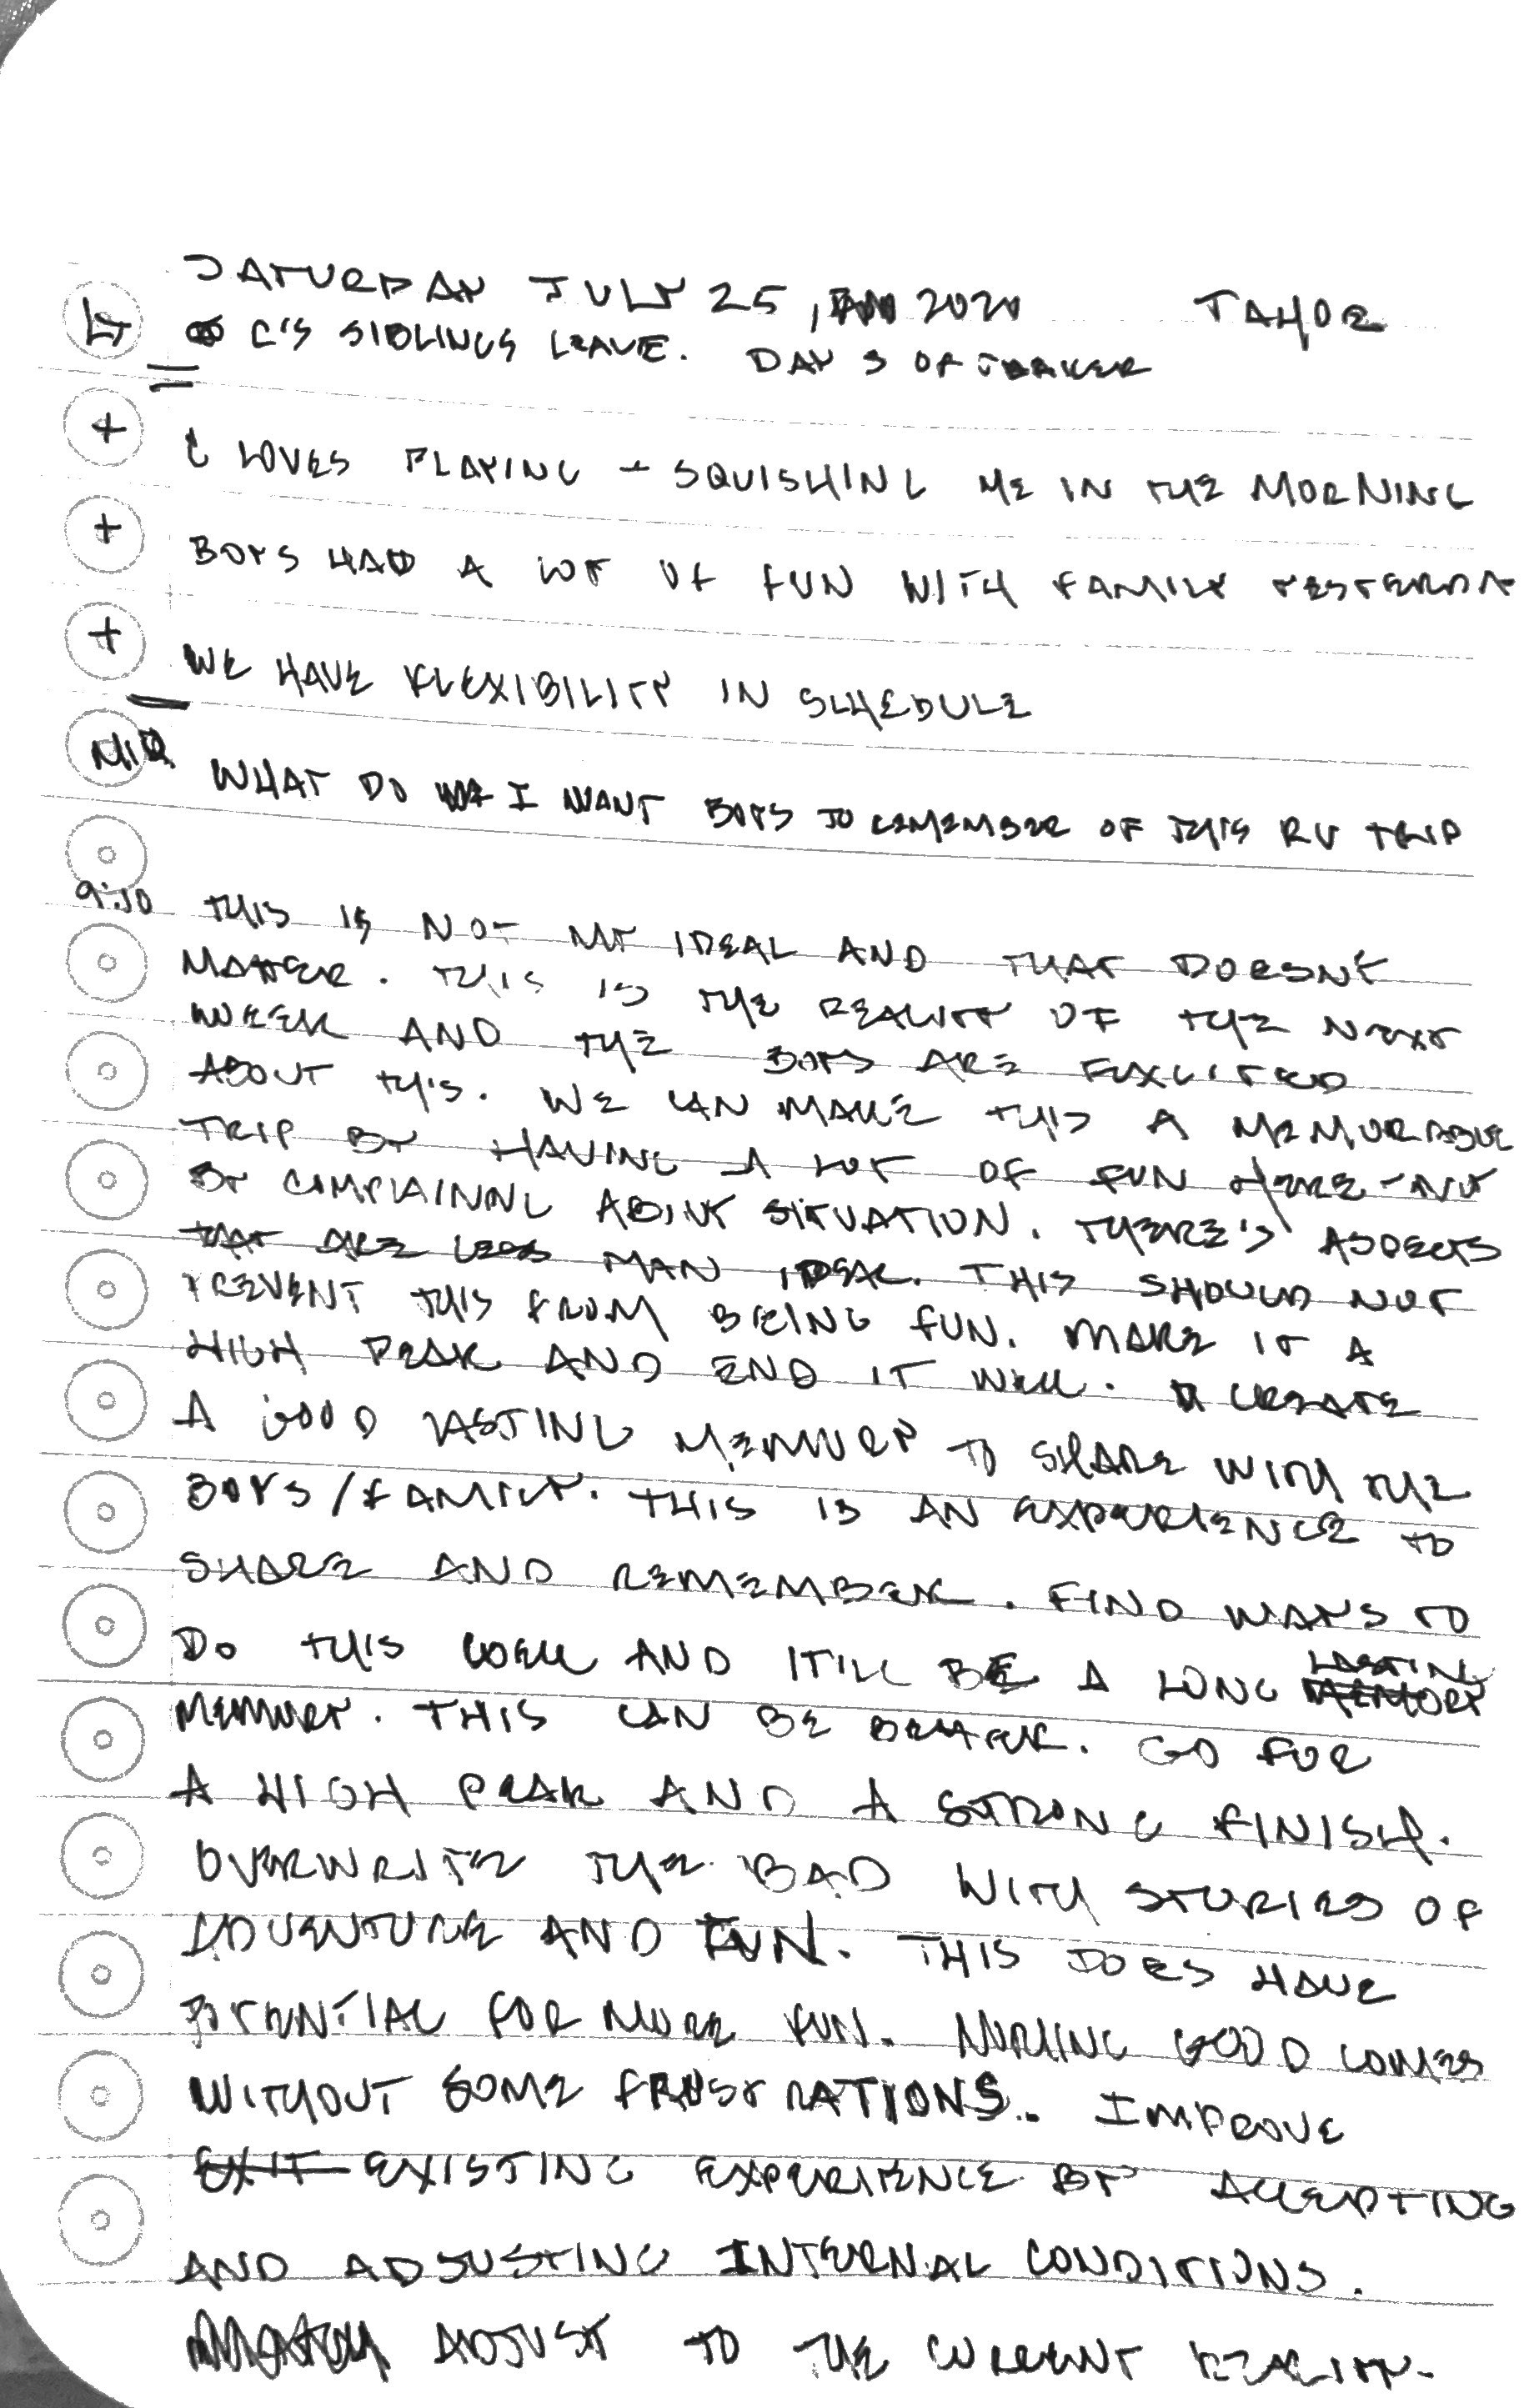 SATURDAY JULY 25, 2020 TAHOE
C'S SIBLINGS LEAVE. DAY 3 OF
+ C LOVES PLAYING + SQUISHING ME IN THE MORNING
+ BOYS HAD A LOT OF FUN WITH FAMILY YESTERDA
+ WE HAVE FLEXIBILITY IN SCHEDULE
MIQ WHAT DO I WANT BOYS TO REMEMBER OF THIS RV TRIP
9:10 THIS IS NOT MY IDEAL AND THAT DOESN'T
MATTER. THIS IS THE REALITY OF THE NEXT
WEEK AND THE BOYS ARE EXCITED
ABOUT THIS. WE CAN MAKE THIS A MEMORABLE
TRIP BY HAVING A LOT OF FUN HERE - NOT
BY COMPLAINING ABOUT SITUATION. THERE'S ASPECTS
THAT ARE LESS THAN IDEAL. THIS SHOULD NOT
PREVENT THIS FROM BEING FUN. MAKE IT A
HIGH PEAK AND END IT WELL. CREATE
A GOOD LASTING MEMORY TO SHARE WITH THE
BOYS/FAMILY. THIS IS AN EXPERIENCE TO
SHARE AND REMEMBER. FIND WAYS TO
DO THIS WELL AND IT'LL BE A LONG LASTING
MEMORY. THIS CAN BE BETTER. GO FOR
A HIGH PEAK AND A STRONG FINISH.
OVERWRITE THE BAD WITH STORIES OF
ADVENTURE AND FUN. THIS DOES HAVE
POTENTIAL FOR MORE FUN. NOTHING GOOD COMES
WITHOUT SOME FRUSTRATIONS.. IMPROVE
EXISTING EXPERIENCE BY ACCEPTING
AND ADJUSTING INTERNAL CONDITIONS.
ADJUST TO THE CURRENT REALITY.